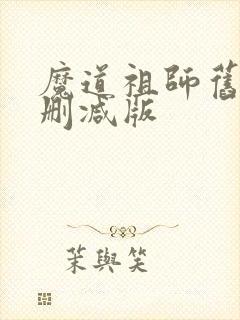 魔道祖師舊
刪減版
茉與笑